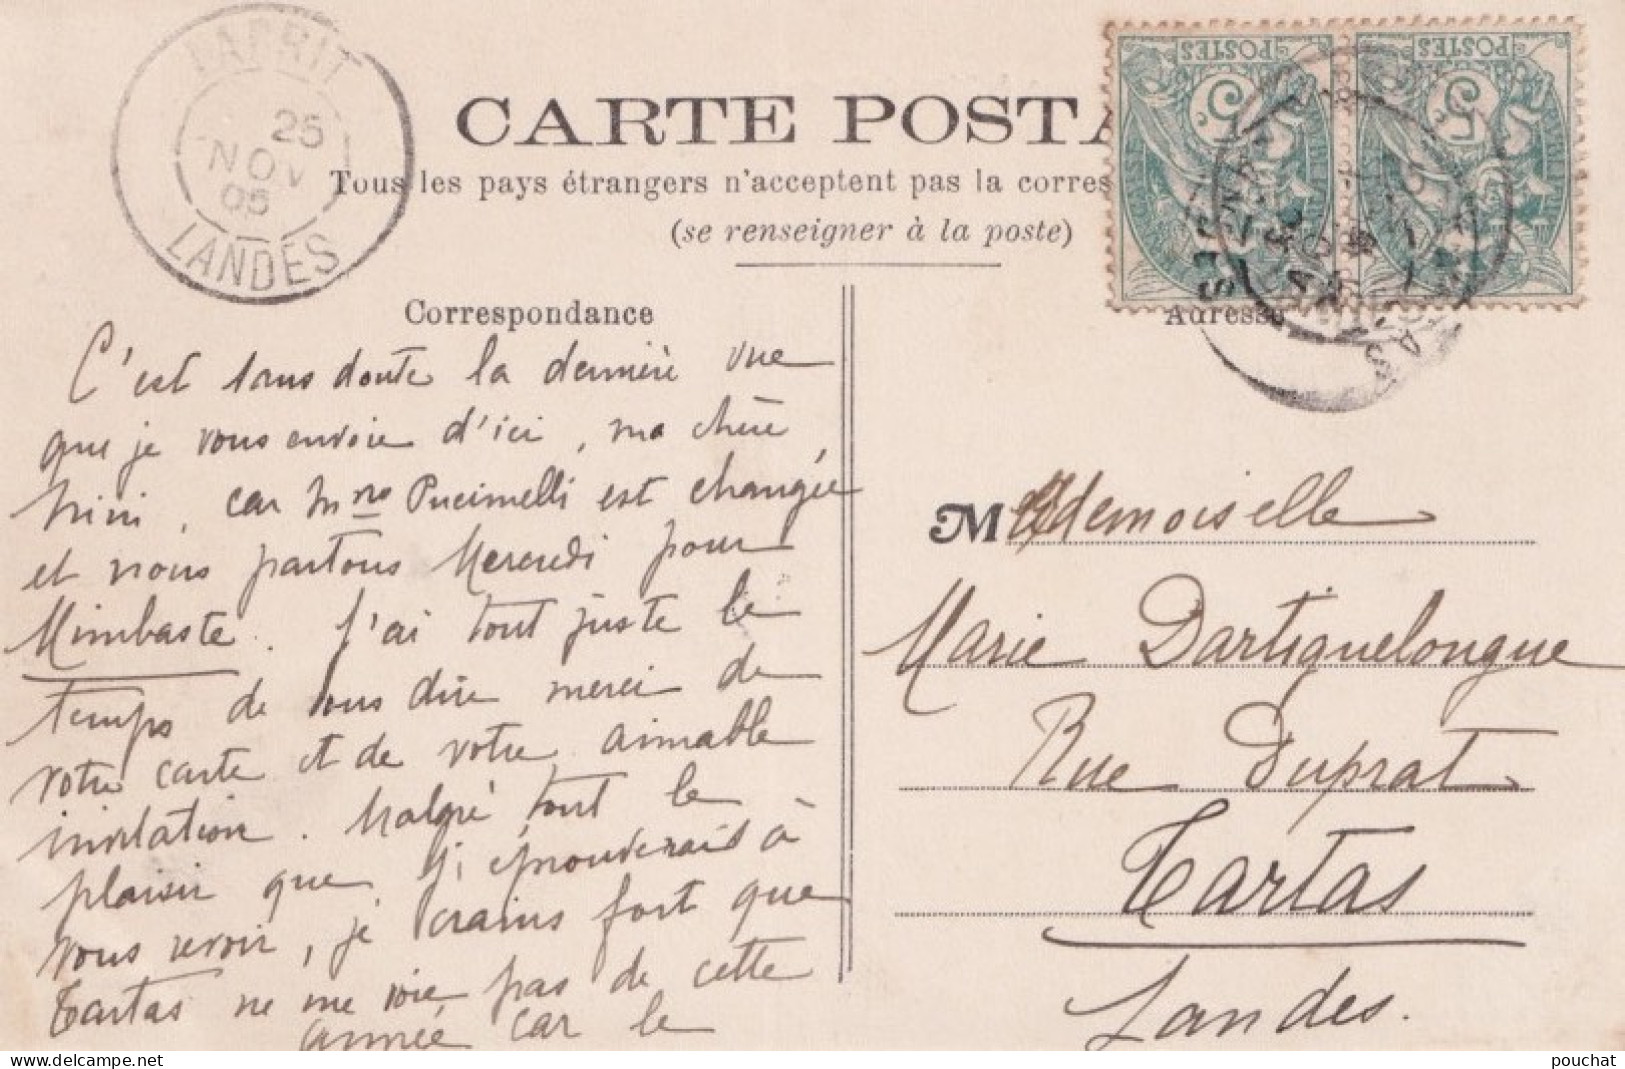 LABRIT
25
NOV
05
LANDES
CARTE POSTA
POSTES
POSTES
5
5
Tous les pays étrangers n'acceptent pas la corres
(se renseigner à la poste)
Correspondance
Adresse
C'est sans doute la dernière vue
que je vous envoie d'ici, ma chère
Nini, car Mme Pucimelli est changée
et nous partons Mercredi pour
Mimbaste. J'ai tout juste le
temps de vous dire merci de
votre carte et de votre aimable
invitation. Malgré tout le
plaisir que j'éprouverais à
vous revoir, je crains fort que
Tartas ne me voie pas de cette
année car le
Mademoiselle
Marie Dartiguelongue
Rue Duprat
Tartas
Landes.
www.delcampe.net
pouchat